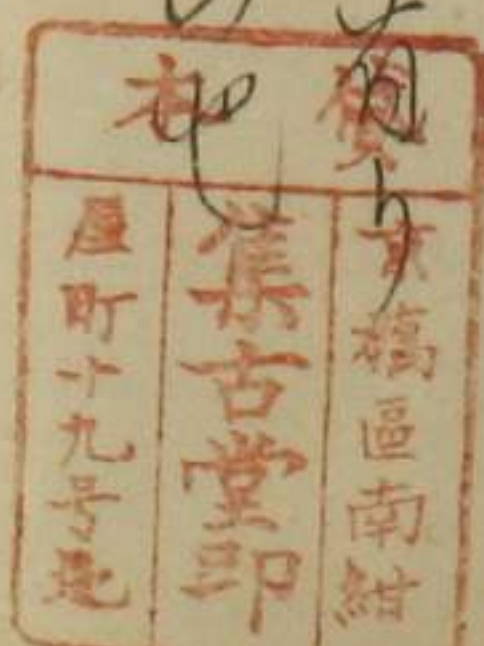 貸本
京橋區南紺
集古堂印
屋町十九号地